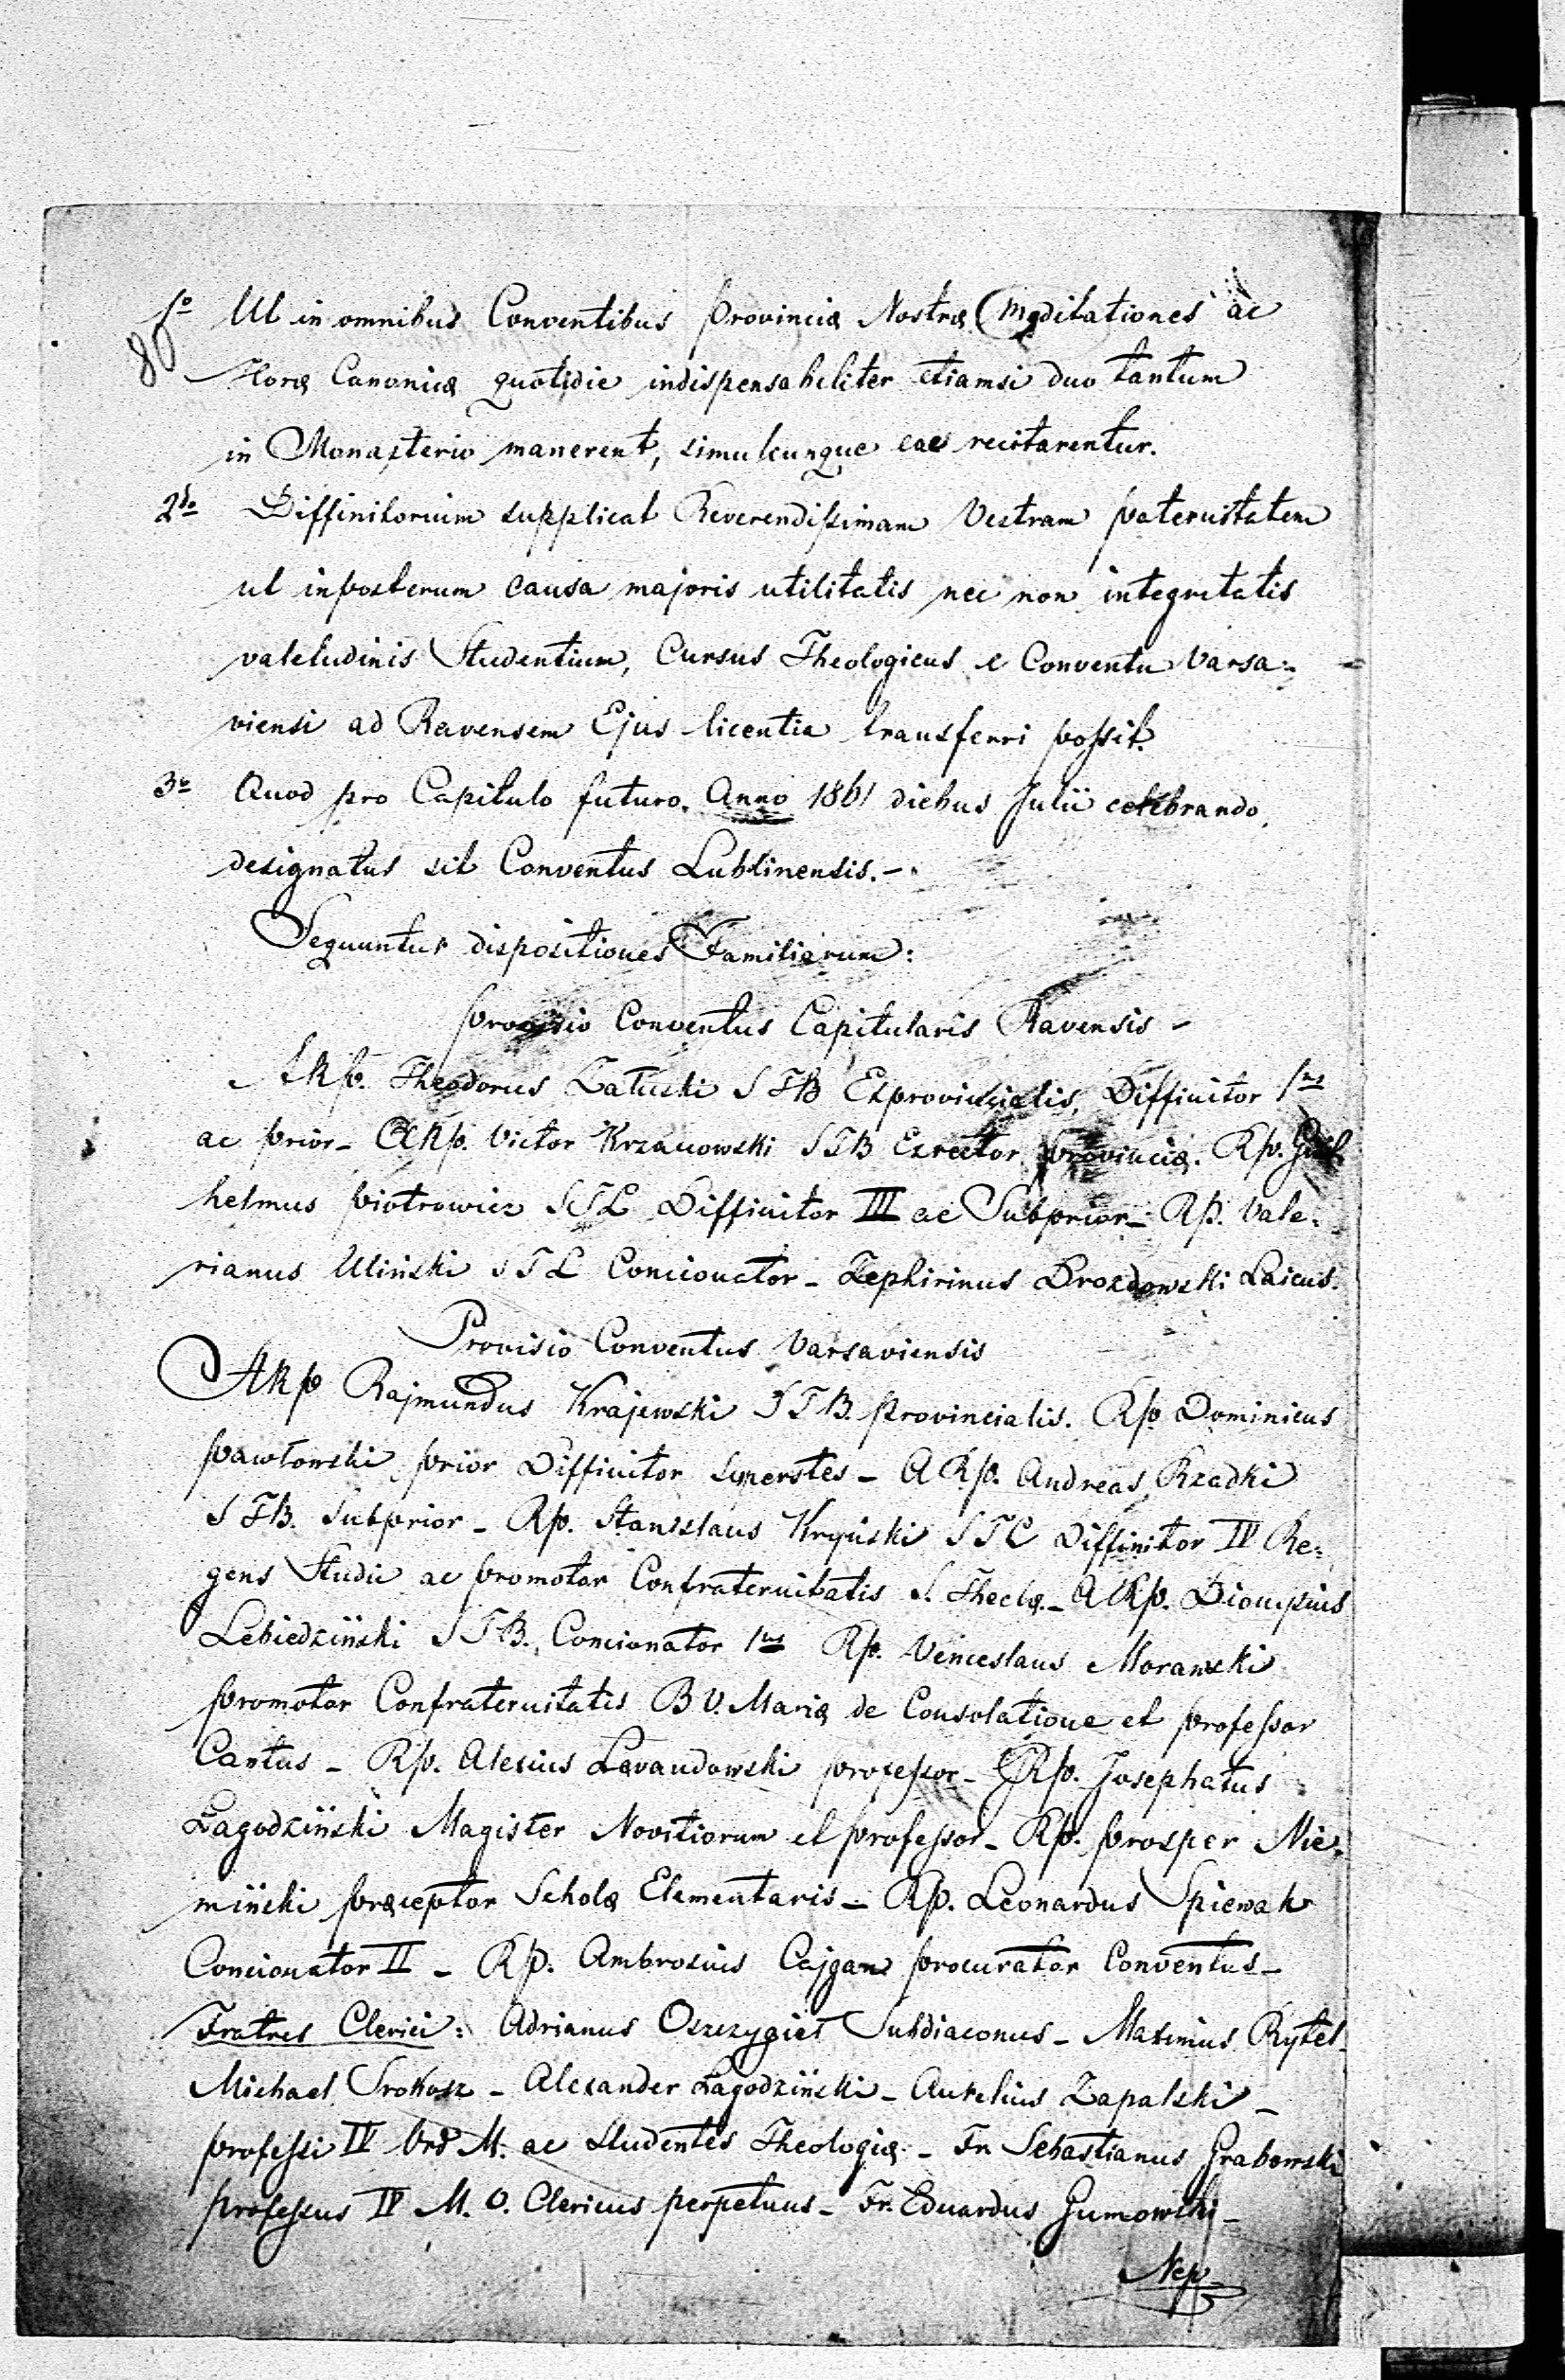 1º Ut in omnibus Conventibus Provinciæ Nostræ Meditationes ac
80
Horæ Canonicæ quotidie indispensabiliter etiamsi duo tantum
in Monasterio manerent, simulcunque eae recitarentur.
2do Diffinitorium supplicat Reverendissimam Vestram Paternitatem
ut inposterum causa majoris utilitatis nec non integritatis
valetudinis Studentium, Cursus Theologicus e Conventu Varsa:
viensi ad Ravensem Ejus licentia transferri possit.
3o Quod pro Capitulo futuro Anno 1861 diebus Julii celebrando,
designatus sit Conventus Lublinensis.-
Sequuntur dispositiones Familiarum:
Provisio Conventus Capitularis Ravensis -
ARP. Theodorus Załuski STB Exprovincialis, Diffinitor 1us
ac Prior - ARP. Victor Krzanowski STB Exrector Provinciæ. RP. Guil
helmus Piotrowicz STL Diffinitor III ac Subprior - RP. Vale:
rianus Uliński STL Concionator - Zephirinus Drozdowski Laicus.
Provisio Conventus Varsaviensis
ARP Rajmundus Krajewski STB. Provincialis. RP. Dominicus
Pawłowski Prior Diffinitor Superstes - ARP. Andreas Rzadki
STB. Subprior - RP. Stanislaus Kryński STL Diffinitor IV Re:
gens Studii ac Promotor Confraternitatis S. Theclæ. - ARP. Dionysius
Lebiedziński STB. Concionator 1us RP. Venceslaus Morawski
Promotor Confraternitatis B V. Mariæ de Consolatione et Professor
Cantus - RP. Alexius Levandowski Professor - RP. Josephatus
Łagodziński Magister Novitiorum et Professor - RP. Prosper Nie:
miński Præceptor Scholæ Elementaris - RP. Leonardus Spiewak
Concionator II - RP. Ambrosius Cajgan Procurator Conventus -
Fratres Clerici: Adrianus Oszczygieł Subdiaconus - Maximus Rytel -
Michael Srokosz - Alexander Łagodziński - Aurelius Zapalski -
Professi IV Vrd M. ac Studentes Theologiæ - Fr. Sebastianus Grabowski
Professus IV M. V. Clericus perpetuus - Fr. Eduardus Gumowski -
Nep